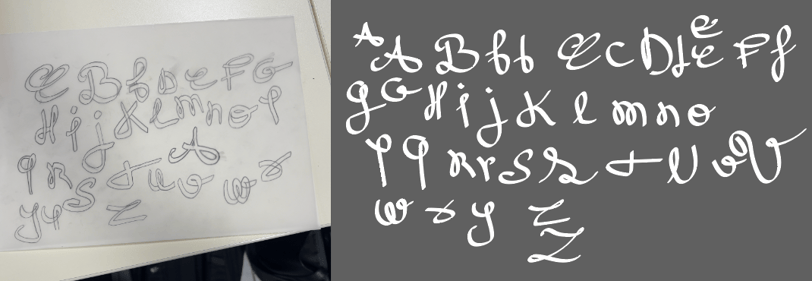 C B b D e F G
H i j K l m n o P
A
q R S t u v w x
y y z
A A B b b C C D d e e F f
g G H i j K l m n o
P q R r S S t U v V
w x y z
Z